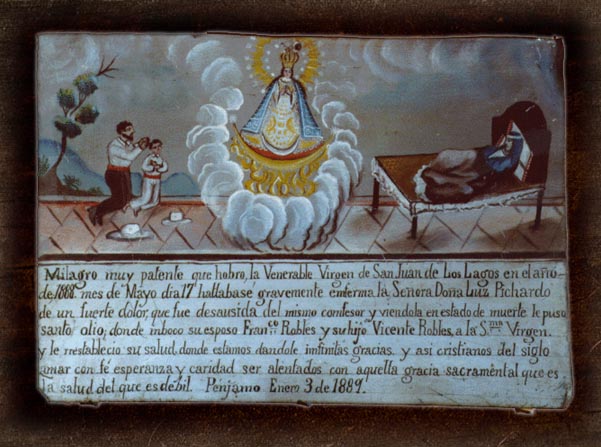 Milagro muy patente que hobro, la Venerable Virgen de San Juan de Los Lagos en el año
de 1888. mes de Mayo dia 17 hallabase gravemente enferma la Señora Doña Luz Pichardo
de un fuerte dolor, que fue desausida del mismo confesor y viendola en estado de muerte le puso
santo olio, donde inboco su esposo Fran.co Robles y su hijo Vicente Robles, a la S.ma Virgen.
y le rrestablecio su salud, donde estamos dandole infinitas gracias. y asi cristianos del siglo
amar con fé esperanza y caridad ser alentados con aquella gracia sacramental que es
la salud del que es debil. Pénjamo Enero 3 de 1889.